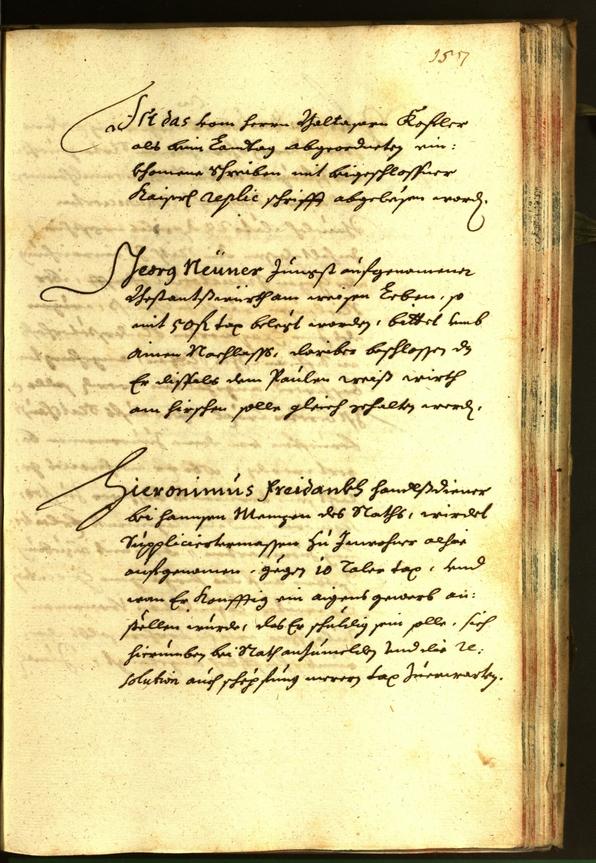 157
Ist das vom Herrn Balthasarn Kofler
als beim Landtag abgeordneten ein:
khomene schreiben mit beigeschlossner
Kaiserl replic schrifft abgelesen word.
Georg Neüner Jüngst aufgenomener
am weissen Leben, so
mit 50 fl tax belegt worden, bittet umb
ainen Nachlass, darüber beschlossen dz
Er dissfals dem Paulen weiß wirth
am hirschen solle gleich gehalten werd.
Hieronimüs Freidankh handlsdiener
bei Hannsen Menzen des Raths, wirdet
Suppliciertermassen zu Inwohner alhie
aufgenomen, gegen 10 Taler tax, und
wan Er Konfftig ein aigens gewerb an:
stellen würde, das Er schuldig sein solle, sich
hierumben bei Rath anzumelden und die re:
solution auch schepfung merern tax zuerwarten.